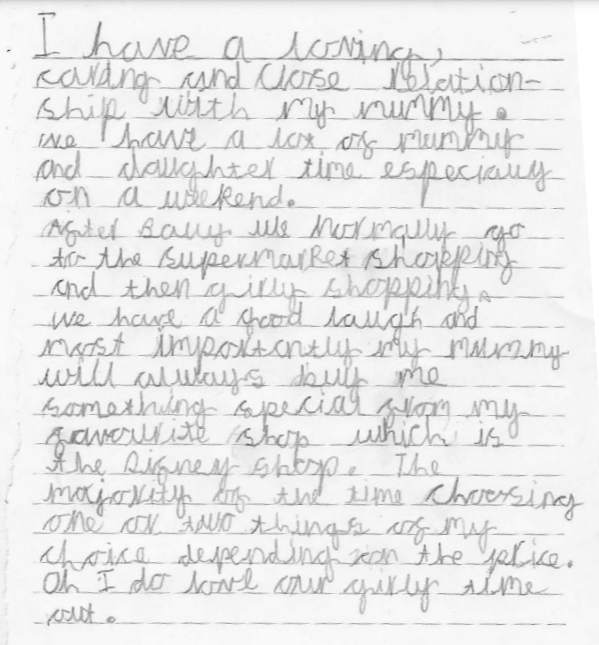 I have a loving,
caring and close relation-
ship with my mummy.
we have a lot of mummy
and daughter time especially
on a weekend.
After Bally we Normally go
to the supermarket shopping
and then girly shopping.
we have a good laugh and
most importantly my mummy
will always buy me
something special from my
favourite shop which is
the Disney shop. The
majority of the time choosing
one or two things of my
choice depending on the price.
Oh I do love our girly time
out.